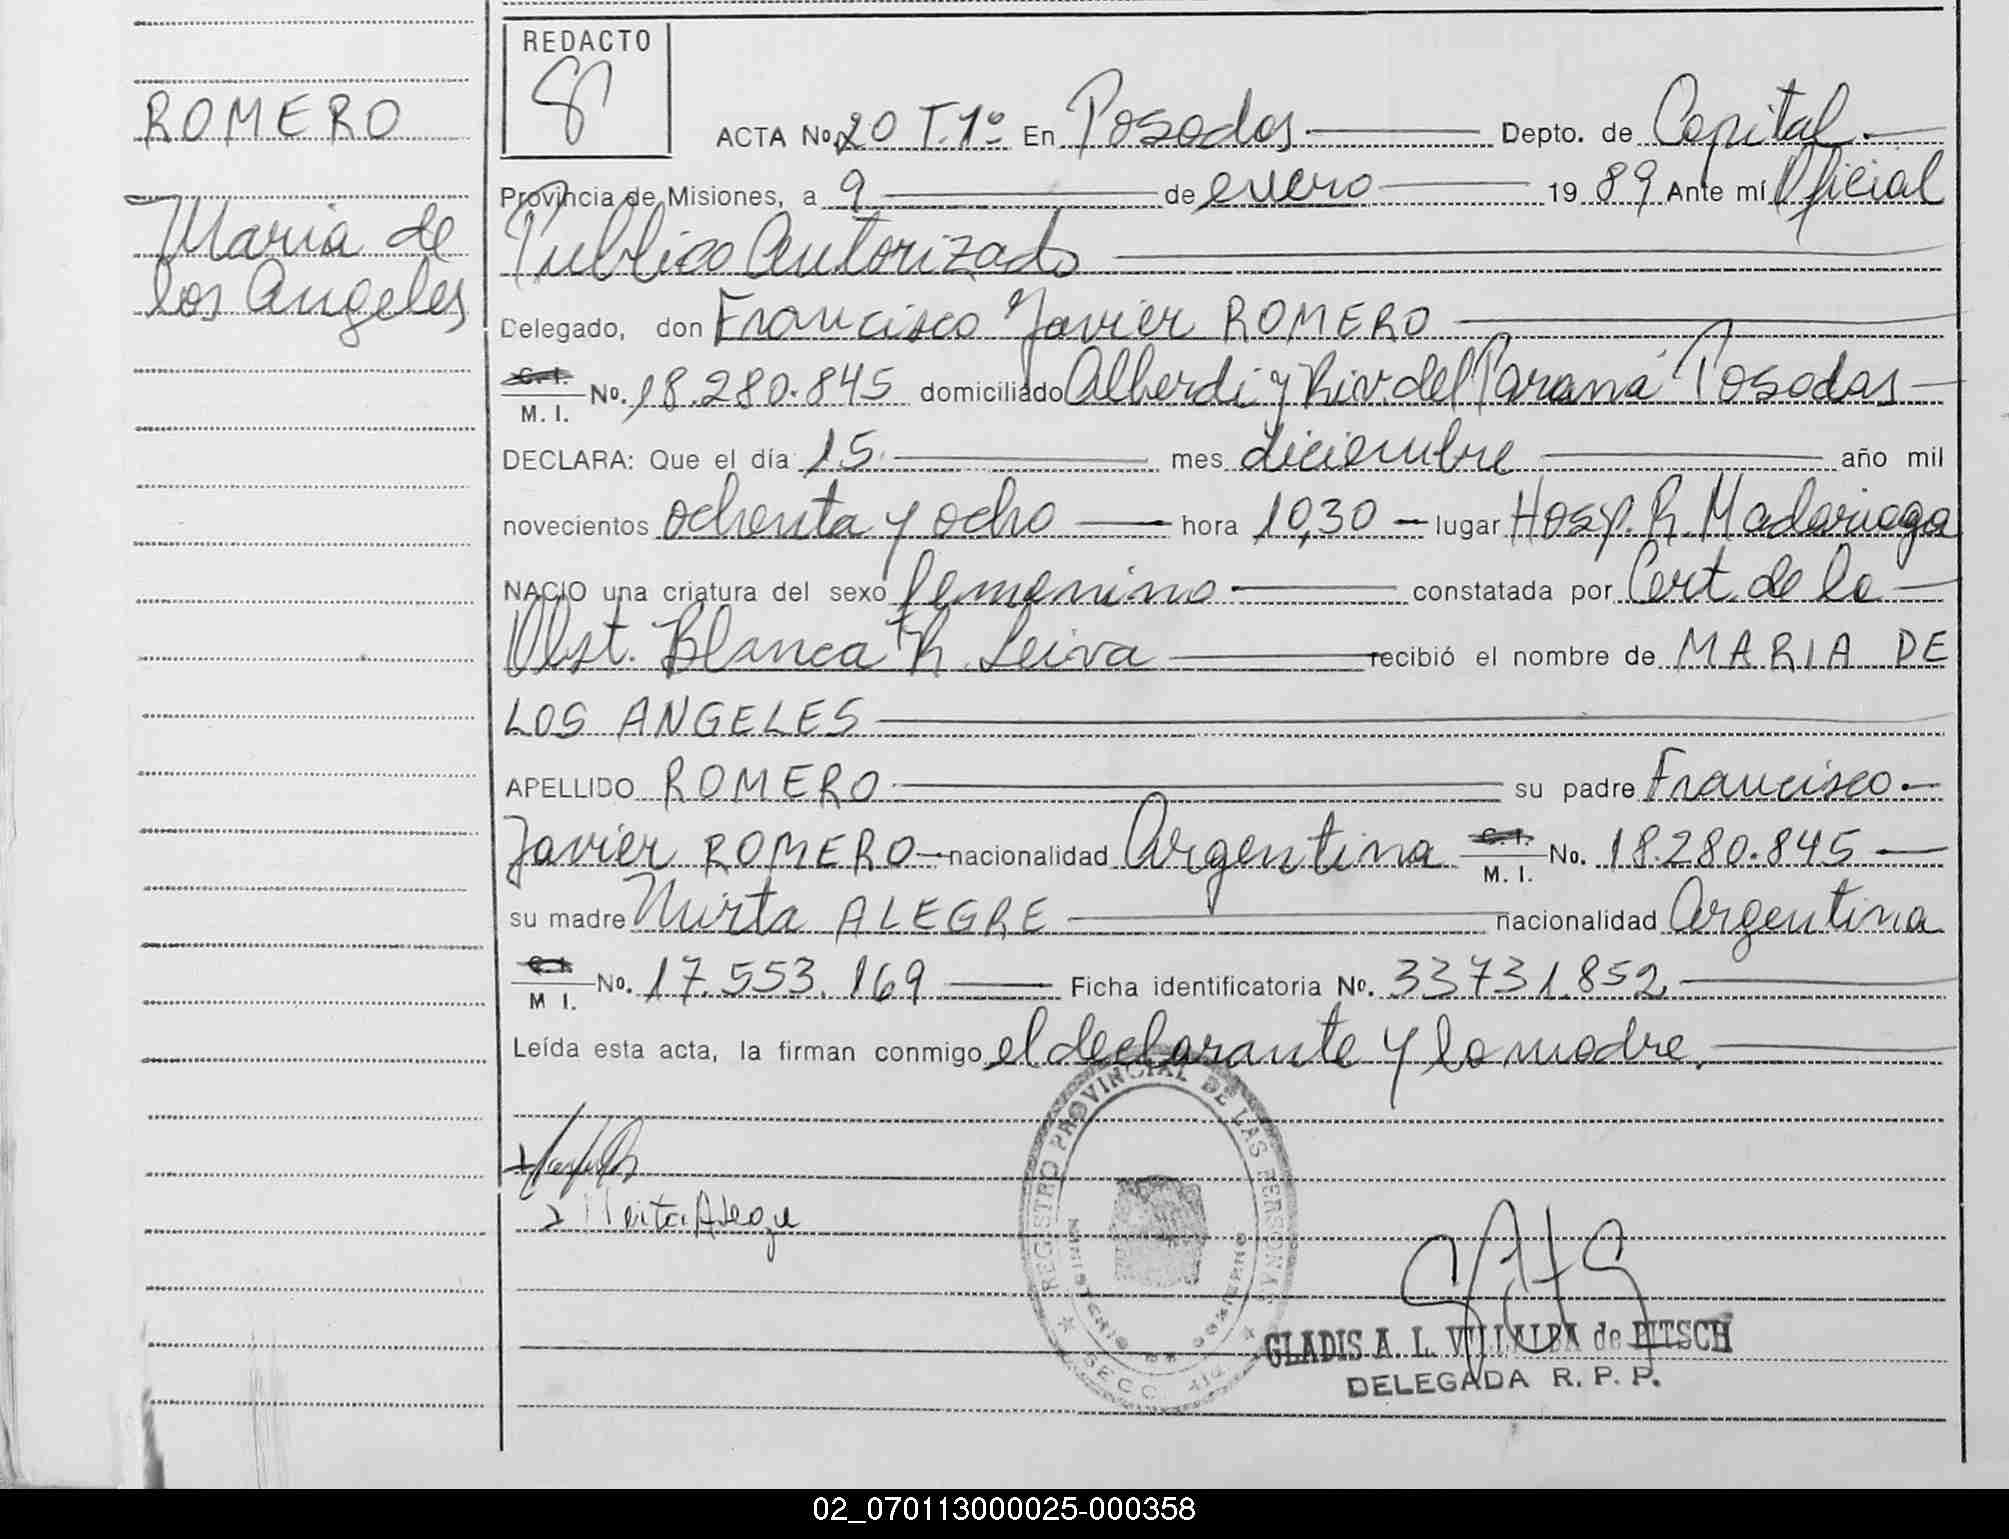 ROMERO
Maria de
los Angeles
REDACTO
ACTA No. 20 T.1º En Posadas Depto. de Capital
Provincia de Misiones, a 9 de enero 1989 Ante mí Oficial
Publico Autorizado
Delegado, don Francisco Javier ROMERO
C. I. M. I. No. 18.280.845 domiciliado Alberdi y Riv. del Paraná Posadas
DECLARA: Que el día 15 mes diciembre año mil
novecientos ochenta y ocho hora 10,30 lugar Hosp. R. Madariaga
NACIO una criatura del sexo femenino constatada por Cert. de la
Obst. Blanca R. Leiva recibió el nombre de MARIA DE
LOS ANGELES
APELLIDO ROMERO su padre Francisco
Javier ROMERO nacionalidad Argentina C. I. M. I. No. 18.280.845
su madre Mirta ALEGRE nacionalidad Argentina
C. I. M I. No. 17.553.169 Ficha identificatoria No. 33731.852
Leída esta acta, la firman conmigo el declarante y la madre.
Mirta Alegre
REGISTRO PROVINCIAL DE LAS PERSONAS
MINISTERIO DE GOBIERNO
SECC.
GLADIS A. L. VILLALBA de PITSCH
DELEGADA R. P. P.
02_070113000025-000358